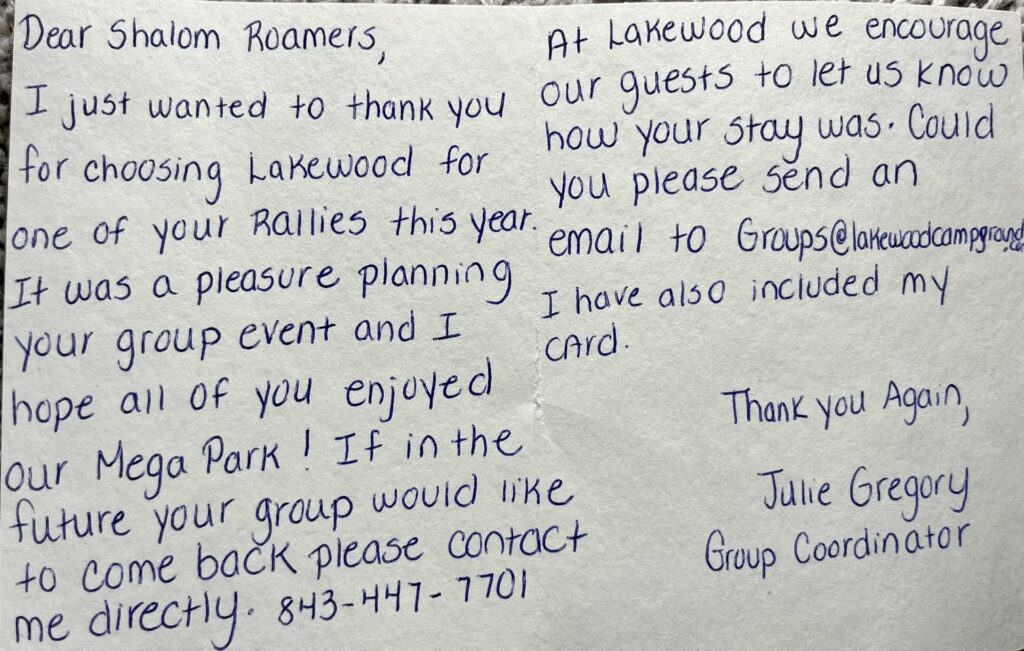 Dear Shalom Roamers,
I just wanted to thank you
for choosing Lakewood for
one of your Rallies this year.
It was a pleasure planning
your group event and I
hope all of you enjoyed
our Mega Park! If in the
future your group would like
to come back please contact
me directly. 843-447-7701
At Lakewood we encourage
our guests to let us know
how your stay was. Could
you please send an
email to Groups@lakewoodcampground.com
I have also included my
card.
Thank you Again,
Julie Gregory
Group Coordinator